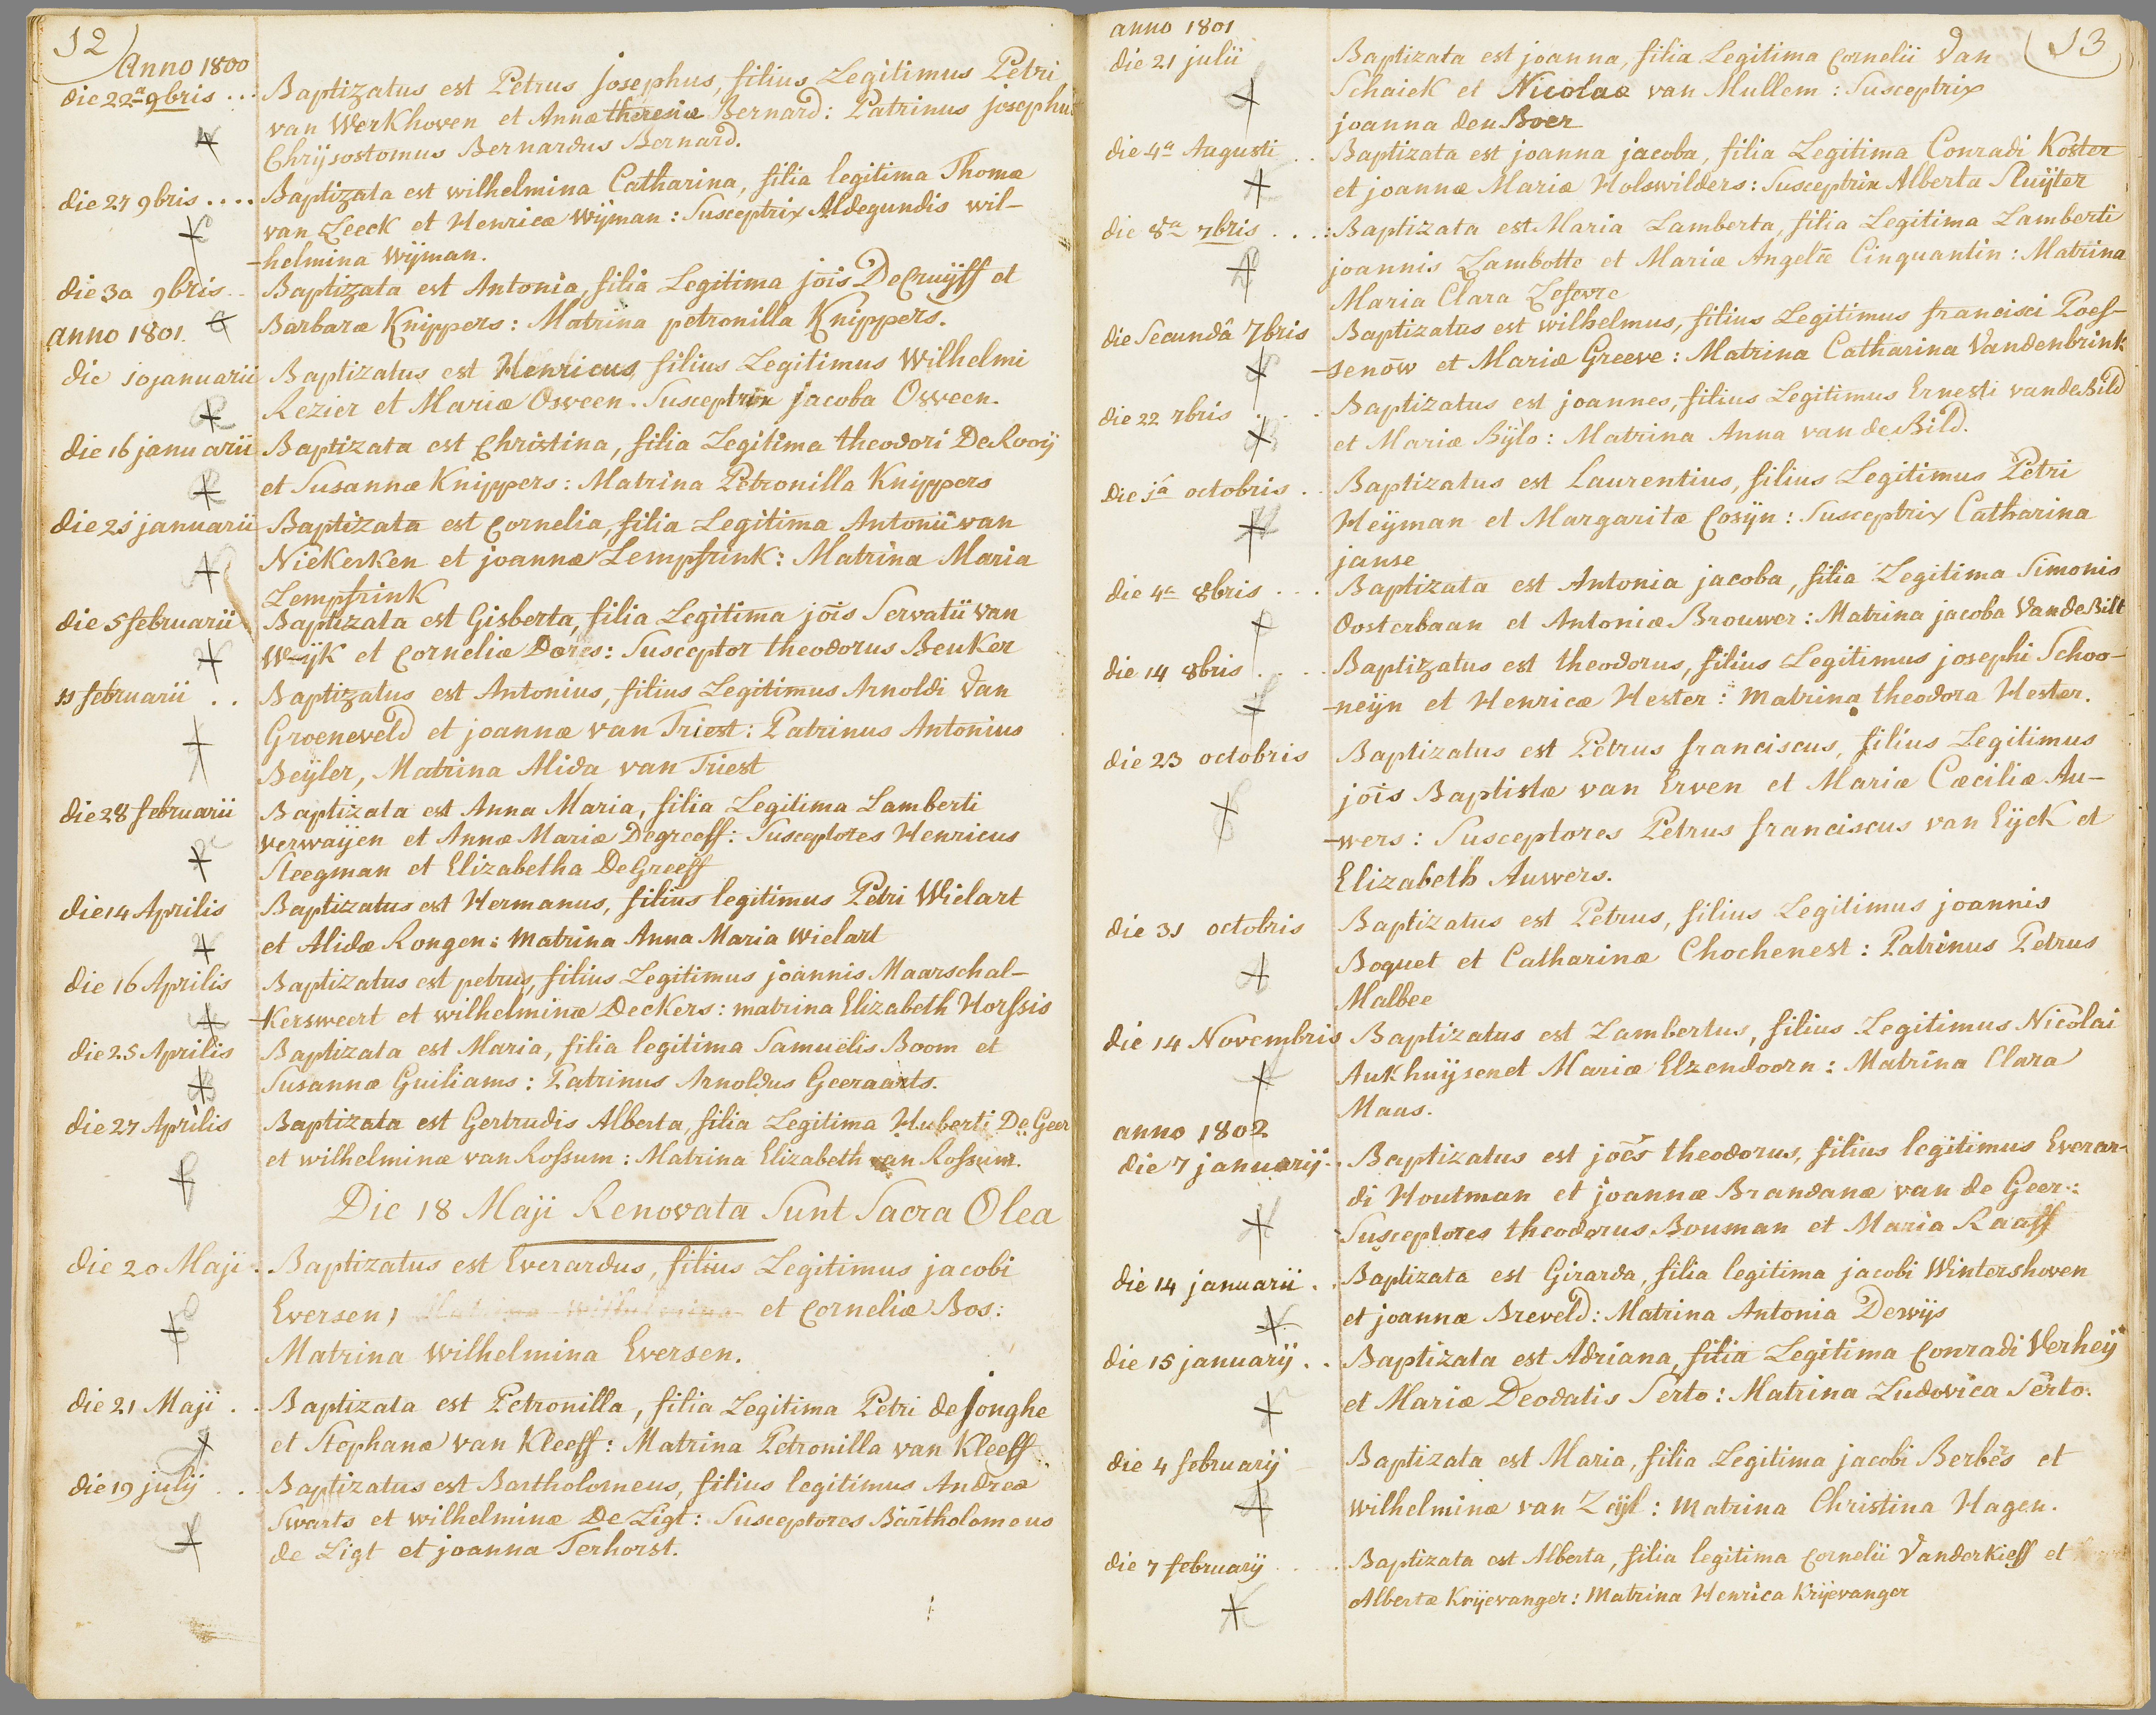 12
Anno 1800
die 22a 9bris ... Baptizatus est Petrus Josephus, filius Legitimus Petri
van Werkhoven et Annæ theresiæ Bernard: Patrinus josephus
Chrijsostomus Bernardus Bernard.
die 27 9bris .... Baptizata est wilhelmina Catharina, filia legitima Thomæ
van Leeck et Henricæ Wijman: Susceptrix Aldegundis wil-
-helmina Wijman.
die 30 9bris .. Baptizata est Antonia, filia Legitima jois DeCruijff et
anno 1801. Barbaræ Knippers: Matrina petronilla Knippers.
die 10 januarii Baptizatus est Henricus filius Legitimus Wilhelmi
Rezier et Mariæ Osween. Susceptrix jacoba Osween.
die 16 januarii Baptizata est Christina, filia Legitima theodori DeRooij
et Susannæ Knippers: Matrina Petronilla Knippers
die 21 januarii Baptizata est Cornelia, filia Legitima Antonii van
Niekerken et joannæ Lempfrink: Matrina Maria
Lempfrink
die 5 februarii Baptizata est Gisberta, filia Legitima jois Servatii van
Wijk et Corneliæ Dores: Susceptor theodorus Beuker
11 februarii .. Baptizatus est Antonius, filius Legitimus Arnoldi Van
Groeneveld et joannæ van Triest: Patrinus Antonius
Beijler, Matrina Alida van Triest
die 28 februarii Baptizata est Anna Maria, filia Legitima Lamberti
verwaijen et Annæ Mariæ Degreeff: Susceptores Henricus
Steegman et Elizabetha DeGreeff
die 14 Aprilis Baptizatus est Hermanus, filius legitimus Petri Wielart
et Alidæ Rongen: Matrina Anna Maria wielart
die 16 Aprilis Baptizatus est petrus, filius Legitimus joannis Maarschal-
-kersweert et wilhelminæ Deckers: matrina Elizabeth Horssis
die 25 Aprilis Baptizata est Maria, filia legitima Samuelis Boom et
Susannæ Guiliams: Patrinus Arnoldus Geeraarts.
die 27 Aprilis Baptizata est Gertrudis Alberta, filia Legitima Huberti De Geer
et wilhelminæ van Rossum: Matrina Elizabeth van Rossum.
Die 18 Maji Renovata Sunt Sacra Olea
die 20 Maji . Baptizatus est Everardus, filius Legitimus jacobi
Eversen, Matrina Wilhelmina et Corneliæ Bos:
Matrina Wilhelmina Eversen.
die 21 Maji .. Baptizata est Petronilla, filia Legitima Petri de Jonghe
et Stephanæ van Kleeff: Matrina Petronilla van Kleeff
die 19 julij .. Baptizatus est Bartholomeus, filius legitimus Andreæ
Swarts et wilhelminæ De Ligt: Susceptores Bartholomeus
de Ligt et joanna Terhorst.
13
anno 1801
die 21 julii Baptizata est joanna, filia Legitima Cornelii Van
Schaick et Nicolaæ van Mullem: Susceptrix
joanna den Boer
die 4a Augusti .. Baptizata est joanna jacoba, filia Legitima Conradi Koster
et joannæ Mariæ Holswilders: Susceptrix Alberta Sluijter
die 8va 7bris ...: Baptizata est Maria Lamberta, filia Legitima Lamberti
joannis Lambotte et Mariæ Angelæ Cinquantin: Matrina
Maria Clara Lefevre
die Secundâ 7bris Baptizatus est wilhelmus, filius Legitimus francisci Poes-
-senow et Mariæ Greeve: Matrina Catharina Vandenbrink
die 22 7bris .... Baptizatus est joannes, filius Legitimus Ernesti vandeBild
et Mariæ Bijlo: Matrina Anna van deBild.
die 1a octobris .. Baptizatus est Laurentius, filius Legitimus Petri
Heijman et Margaritæ Cosijn: Susceptrix Catharina
janse
die 4a 8bris ... Baptizata est Antonia jacoba, filia Legitima Simonis
Oosterbaan et Antoniæ Brouwer: Matrina jacoba VandeBilt
die 14 8bris .... Baptizatus est theodorus, filius Legitimus josephi Schoo-
-neijn et Henricæ Hester: Matrina theodora Hester.
die 23 octobris Baptizatus est Petrus franciscus, filius Legitimus
jois Baptistæ van Erven et Mariæ Cæciliæ Au-
-wers: Susceptores Petrus franciscus van Eijck et
Elizabeth Auwers.
die 31 octobris Baptizatus est Petrus, filius Legitimus joannis
Boquet et Catharinæ Chochenest: Patrinus Petrus
Malbee
die 14 Novembris Baptizatus est Lambertus, filius Legitimus Nicolai
Aukhuijsen et Mariæ Elzendoorn: Matrina Clara
Maas.
anno 1802
die 7 januarij .. Baptizatus est joes theodorus, filius legitimus Everar-
di Houtman et joannæ Brandanæ van de Geer:
Susceptores theodorus Bouman et Maria Raaff
die 14 januarii .. Baptizata est Girarda, filia legitima jacobi Wintershoven
et joannæ Breveld: Matrina Antonia Dewijs
die 15 januarij .. Baptizata est Adriana, filia Legitima Conradi Verheij
et Mariæ Deodatis Serto: Matrina Ludovica Serto.
die 4 februarij Baptizata est Maria, filia Legitima jacobi Berbés et
wilhelminæ van Zeijl: Matrina Christina Hagen.
die 7 februarij .... Baptizata est Alberta, filia legitima Cornelii Vanderkieff et
Albertæ Krijevanger: Matrina Henrica Krijevanger